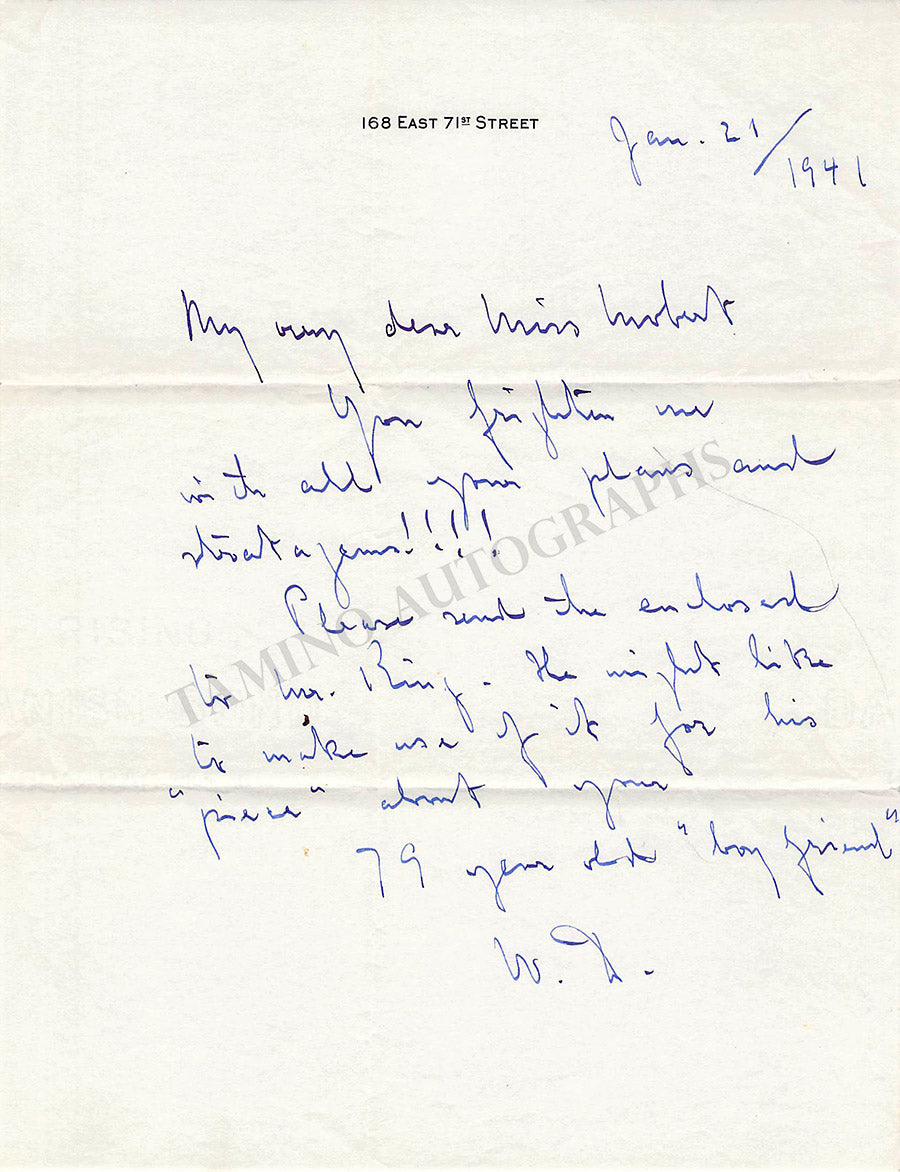 168 EAST 71ST STREET
Jan. 21/
1941
My very dear Miss
You frighten me
with all your plans and
stratagems!!!!
Please send the enclosed
to Mr. King. He might like
to make use of it for his
"piece" about your
79 year old "boy friend"
W. D.
TAMINO AUTOGRAPHS